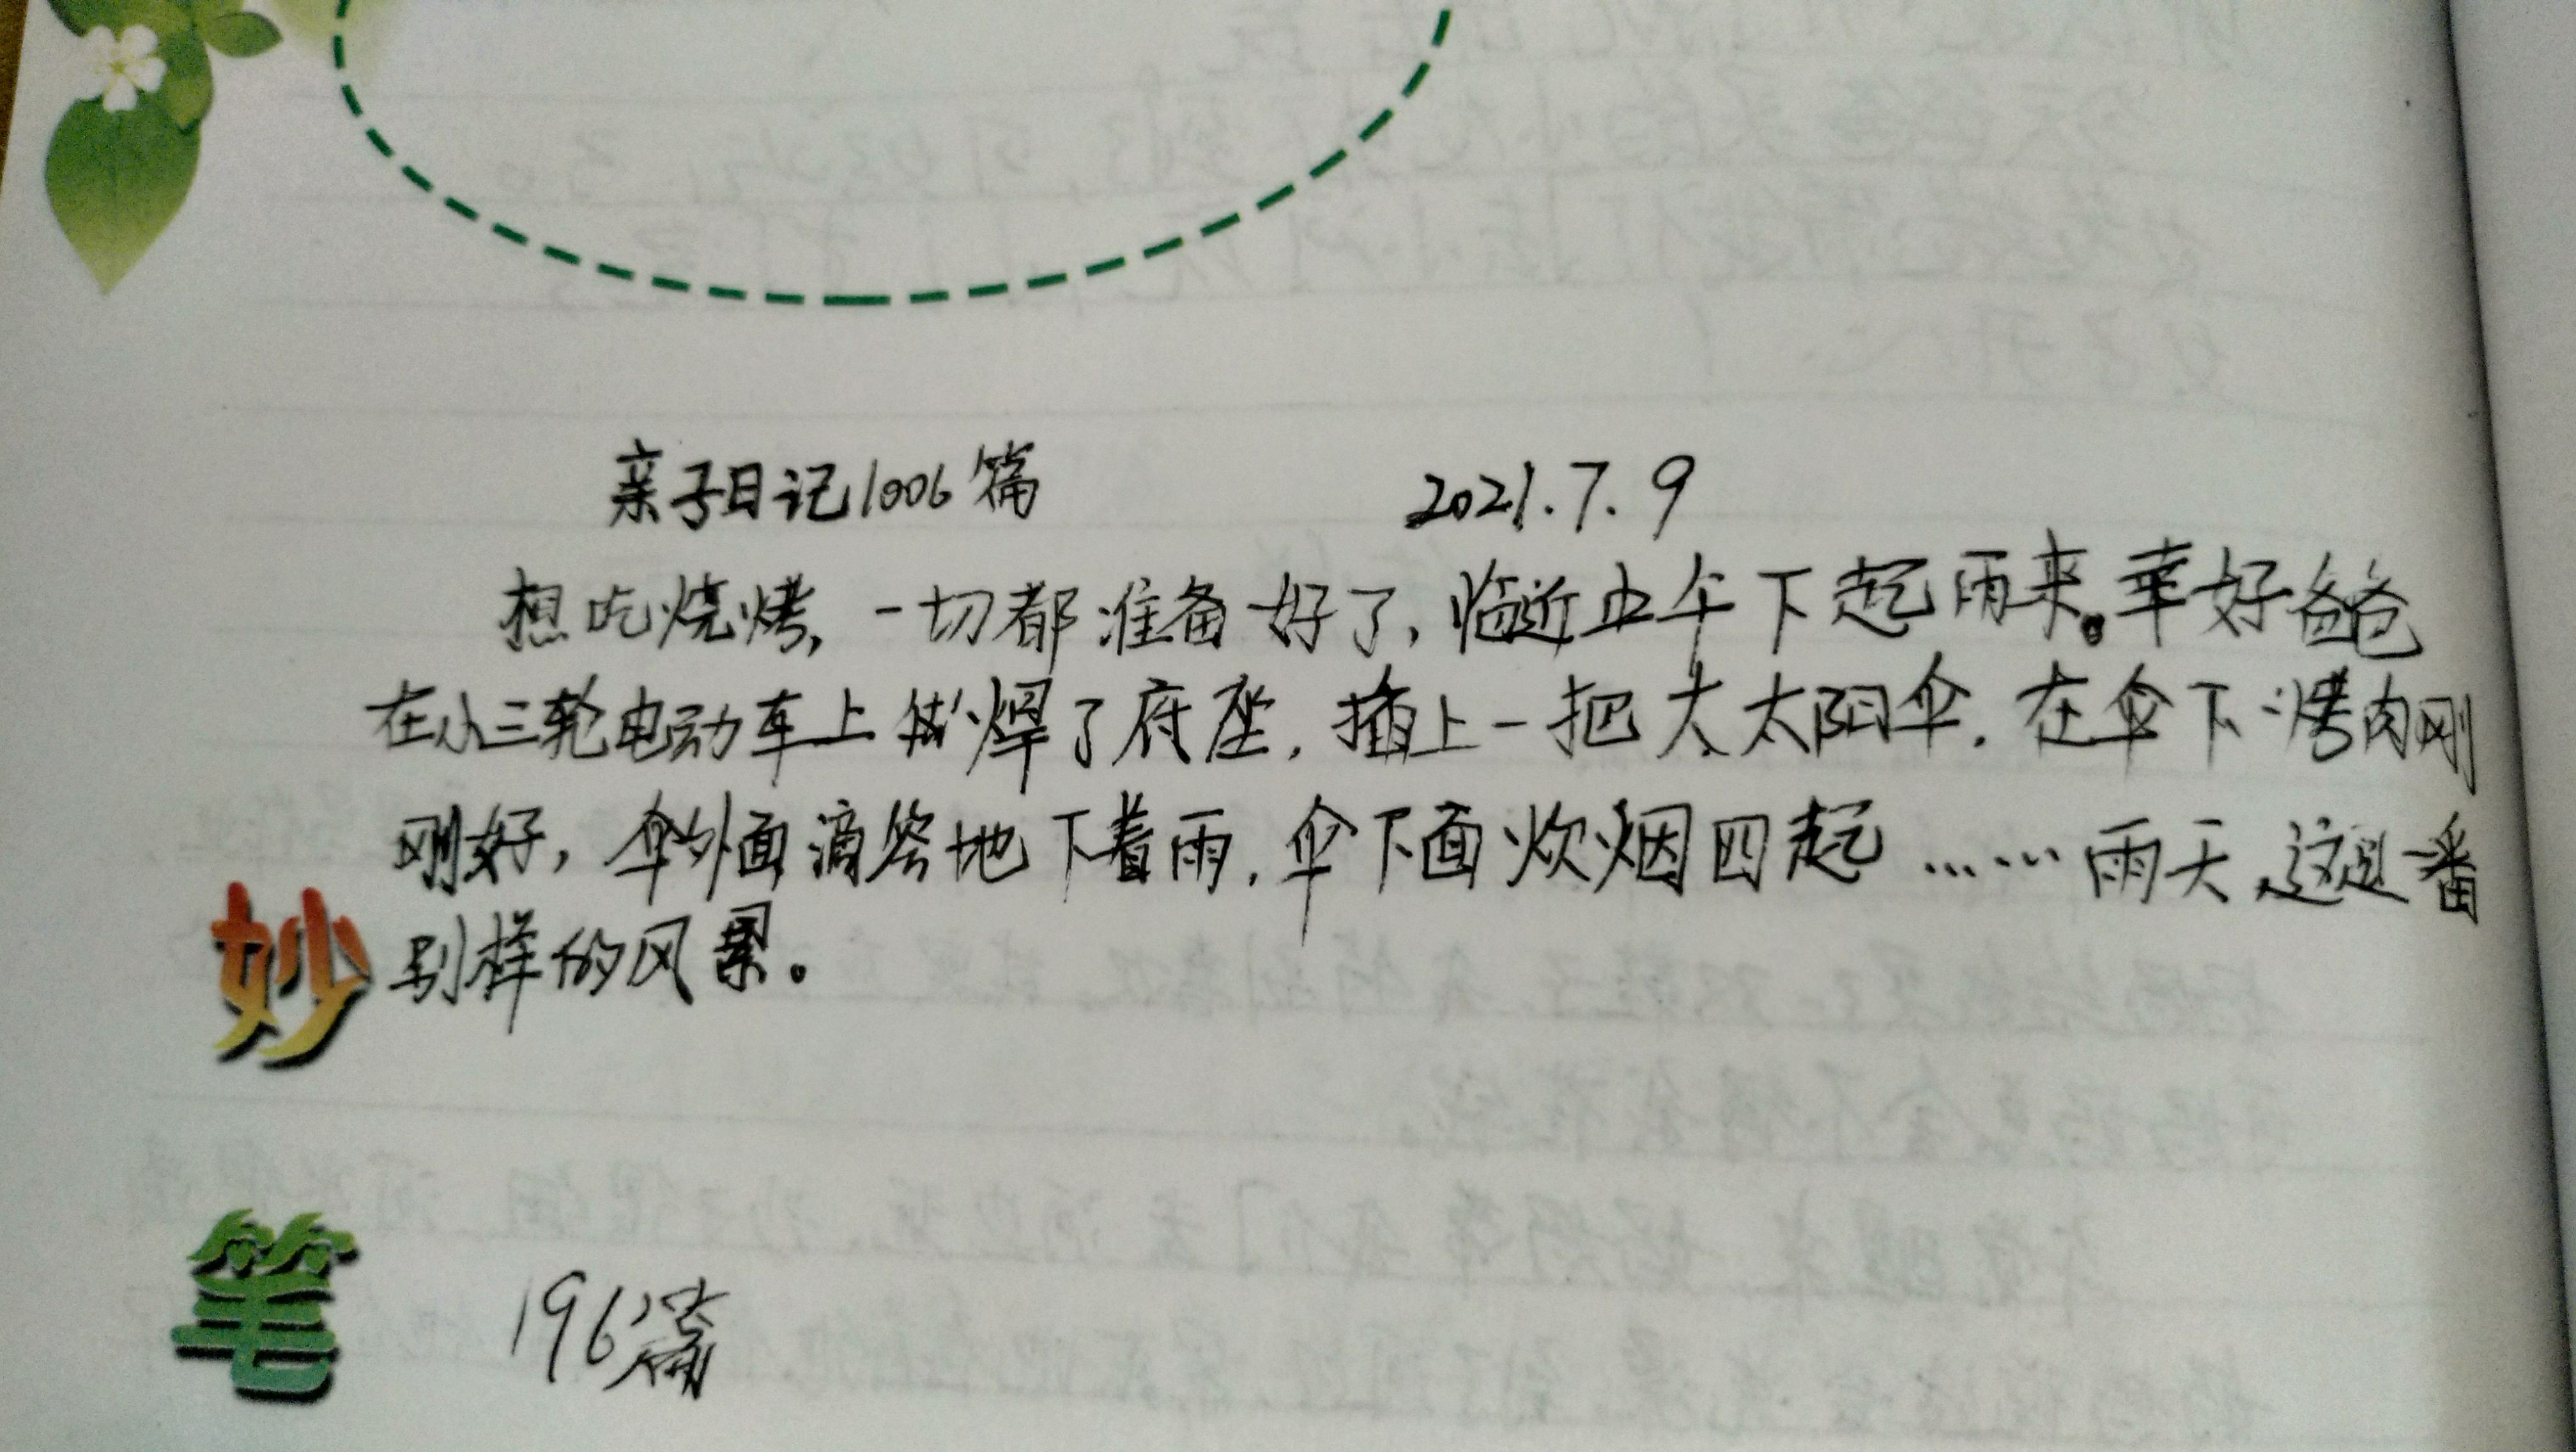 亲子日记1006篇 2021.7.9
想吃烧烤,一切都准备好了,临近中午下起雨来。幸好爸爸
在小三轮电动车上焊了底座,插上一把大太阳伞.在伞下烤肉刚
刚好,伞外面滴答地下着雨,伞下面炊烟四起……雨天,这是一番
别样的风景。
妙
笔
196篇